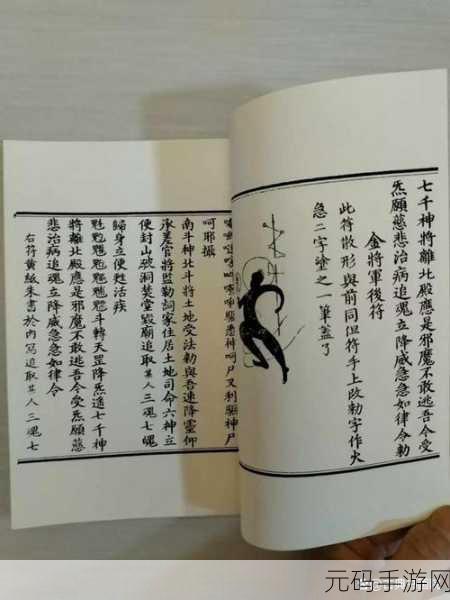 七千神將離北殿應是邪魔不敢逃吾令受
炁願慈悲治病追魂立降威急急如律令勅
金將軍後符
此符散形與前同但符手上改勅字作火
急二字塗之一筆蓋了
呵耶攝
南斗神北斗將土地受法勅與吾速降靈仰
承差官將監勒詞家住居土地司命六神立
便封山破洞焚堂毀廟追取某人三魂七魄
歸身立便甦活疾
斗轉天罡降炁遙七千神
將離北殿應是邪魔不敢逃吾今受炁願慈
悲治病追魂立降威急急如律令
右符黃紙朱書於內寫追取某人三魂七
元码手游网